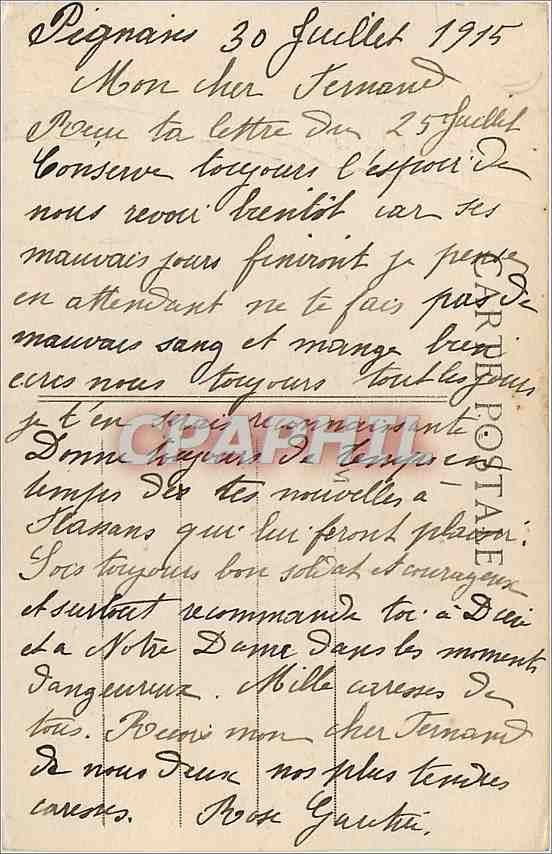 Pignans 30 Juillet 1915
Mon cher Fernand
Reçu ta lettre du 25 Juillet
Conserve toujours l'espoir de
nous revoir bientôt car ses
mauvais jours finiront je pense
en attendant ne te fais pas de
mauvais sang et mange bien
ecris nous toujours tout les jours
je t'en serais reconnaissante
Donne toujours de temps en
temps des tes nouvelles a
Flassans qui lui feront plaisir.
Sois toujours bon soldat et courageux
et surtout recommande toi à Dieu
et a Notre Dame dans les moments
dangeureux. Mille caresses de
tous. Reçois mon cher Fernand
de nous deux nos plus tendres
caresses. Rose
CARTE POSTALE
CPAPHIL